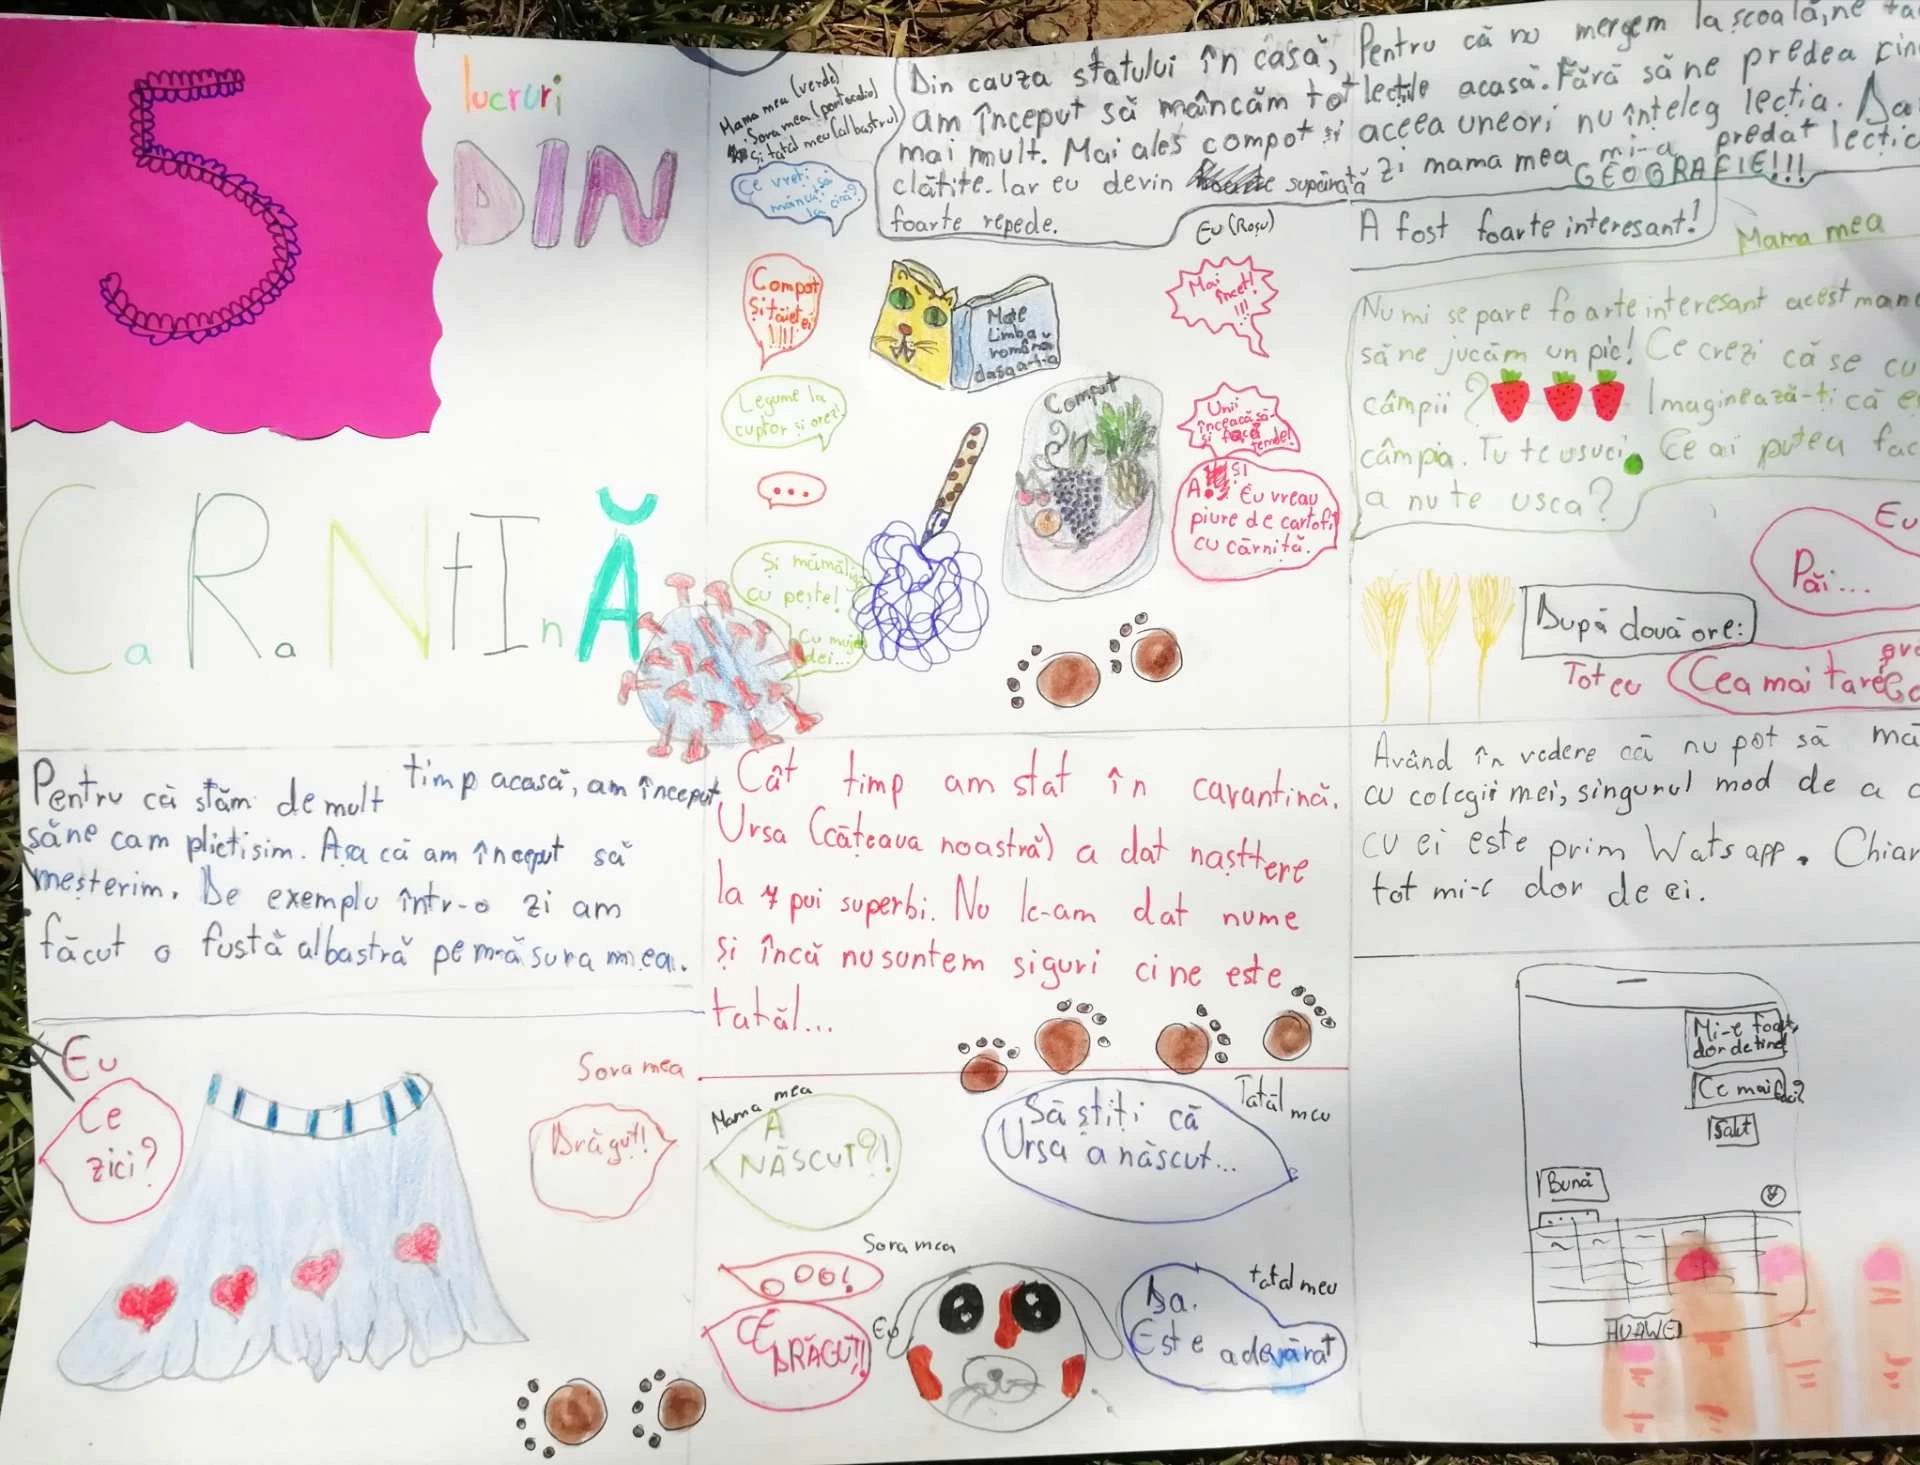 5
lucruri
DIN
CaRaNtInĂ
Mama mea (verde)
Sora mea (portocaliu)
și tatăl meu (albastru)
Ce vreți să
mâncați
la cină?
Compot
și tăieței
!!!!!
Legume la
cuptor și orez!
...
Și mămăligă
cu pește!
Cu mujdei...
Din cauza statului în casă,
am început să mâncăm tot
mai mult. Mai ales compot și
clătite. Iar eu devin supărată
foarte repede.
Eu (Roșu)
Mai
încet!
!!!
Mate
Limba
română
Compot
Unii
înceacă să-
și facă
temele!
și
Eu vreau
piure de cartofi
cu cărniță.
Pentru că nu mergem la școală, ne
lecțiile acasă. Fără să ne predea
aceea uneori nu înțeleg lecția.
zi mama mea mi-a predat
GEOGRAFIE!!!
A fost foarte interesant!
Mama mea
Nu mi se pare foarte interesant acest
să ne jucăm un pic! Ce crezi că se
câmpii? Imaginează-ți că
câmpia. Tu te usuci. Ce ai putea
a nu te usca?
Eu
Păi...
După două ore:
Tot eu
Cea mai tare
Pentru că stăm de mult timp acasă, am început
să ne cam plictisim. Așa că am început să
meșterim. De exemplu într-o zi am
făcut o fustă albastră pe măsura mea.
Eu
Ce
zici?
Sora mea
Drăguț!
Cât timp am stat în carantină.
Ursa (cățeaua noastră) a dat nașttere
la 7 pui superbi. Nu le-am dat nume
și încă nu suntem siguri cine este
tatăl...
Mama mea
A
NĂSCUT?!
Tatăl meu
Să știți că
Ursa a născut...
Sora mea
OOO!
Eu
CE
DRĂGUȚ!
tatăl meu
Da.
Este adevărat
Având în vedere că nu pot să
cu colegii mei, singurul mod de a
cu ei este prim Wats app. Chiar
tot mi-e dor de ei.
Mi-e foarte
dor de tine!
Ce mai faci?
Salut
Bună
...
HUAWEI